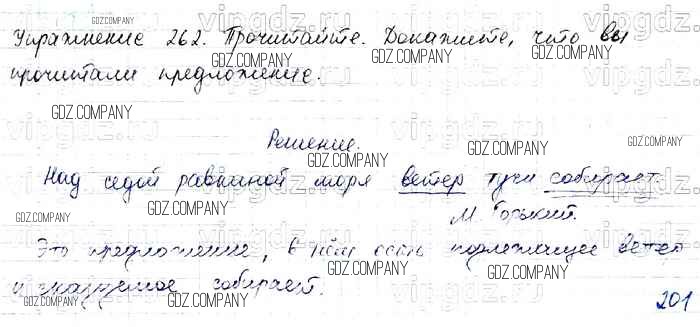 Упражнение 262. Прочитайте. Докажите, что вы
прочитали предложение.
Решение.
Над седой равниной моря ветер тучи собирает.
М. Горький.
Это предложение, в нём есть подлежащее ветер
и сказуемое собирает.
201